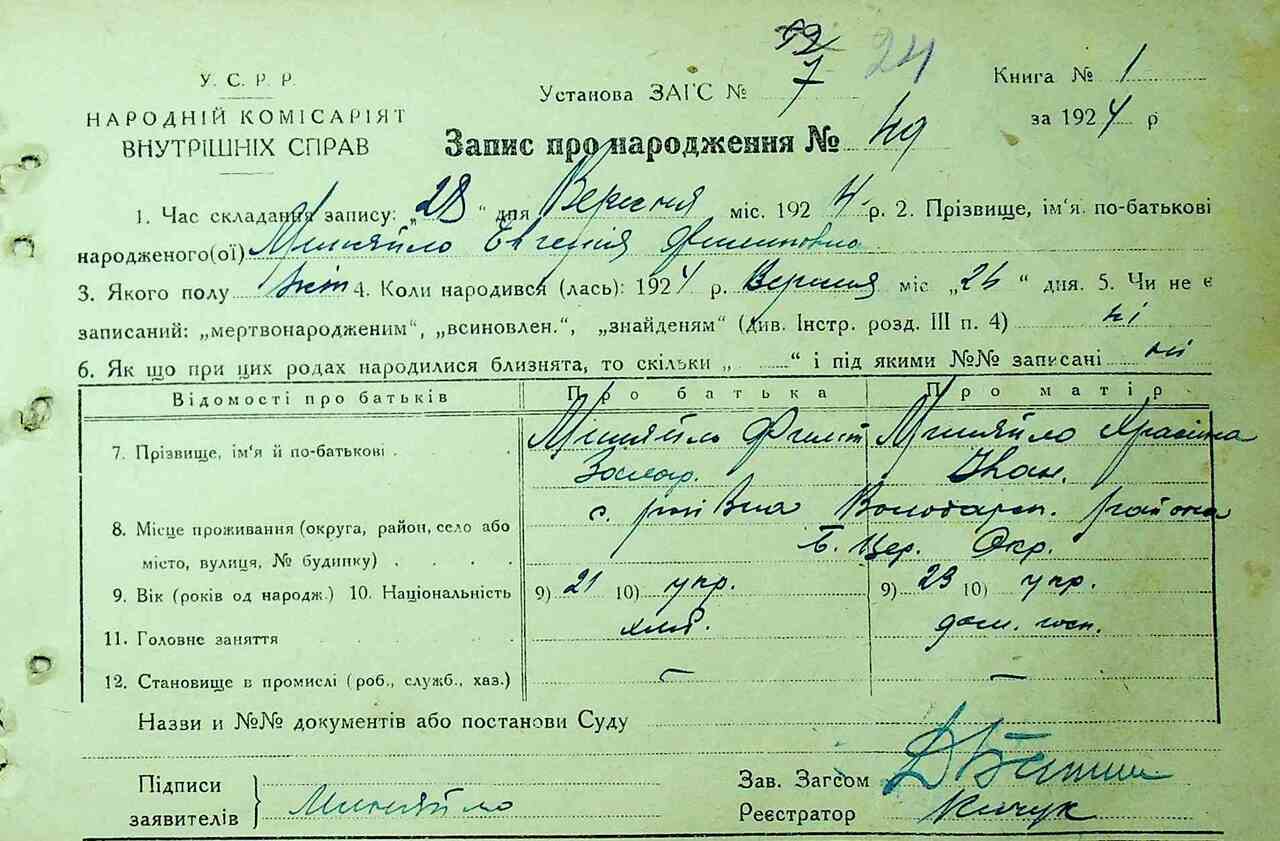 У. С. Р. Р.
НАРОДНІЙ КОМІСАРІЯТ
ВНУТРІШНІХ СПРАВ
Установа ЗАГС № 7
24
Книга № 1
за 1924 р
Запис про народження № 49
1. Час складання запису: „28“ дня Вересня міс. 1924 р. 2. Прізвище, ім'я. по-батькові
народженого(ої) Миняйло Евгенія Филиповна
3. Якого полу жін 4. Коли народився (лась): 1924 р. Вересня міс „26“ дня. 5. Чи не є
записаний: „мертвонародженим“, „всиновлен.“, „знайденям“ (Див. Інстр. розд. III п. 4) ні
6. Як що при цих родах народилися близнята, то скільки „ “ і під якими №№ записані ні
Відомості про батьків Про батька Про матір
7. Прізвище, ім'я й по-батькові Миняйло Филип Миняйло
Іван.
8. Місце проживання (округа, район, село або с. Володарск. района
місто, вулиця, № будинку) Б. Цер. Окр.
9. Вік (років од народж.) 10. Національність 9) 21 10) укр. 9) 23 10) укр.
11. Головне заняття хліб. дом. госп.
12. Становище в промислі (роб., служб., хаз.) — —
Назви и №№ документів або постанови Суду
Підписи
заявителів Миняйло
Зав. Загсом
Реєстратор